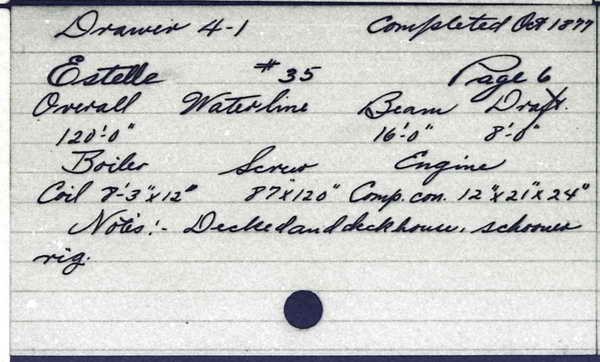 Drawer 4-1 Completed Oct 1877
Estelle #35 Page 6
Overall Waterline Beam Draft.
120'-0" 16'-0" 8'-0"
Boiler Screw Engine
Coil 8'-3"x12" 87"x120" Comp. con. 12"x21"x24"
Notes:- Decked and deckhouse, schooner
rig.